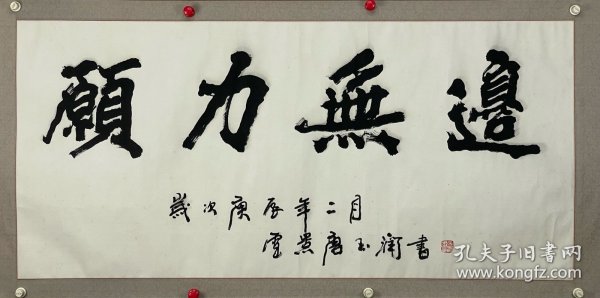 願力無邊
歲次庚辰年二月
唐玉衡書
孔夫子旧书网
www.kongfz.com